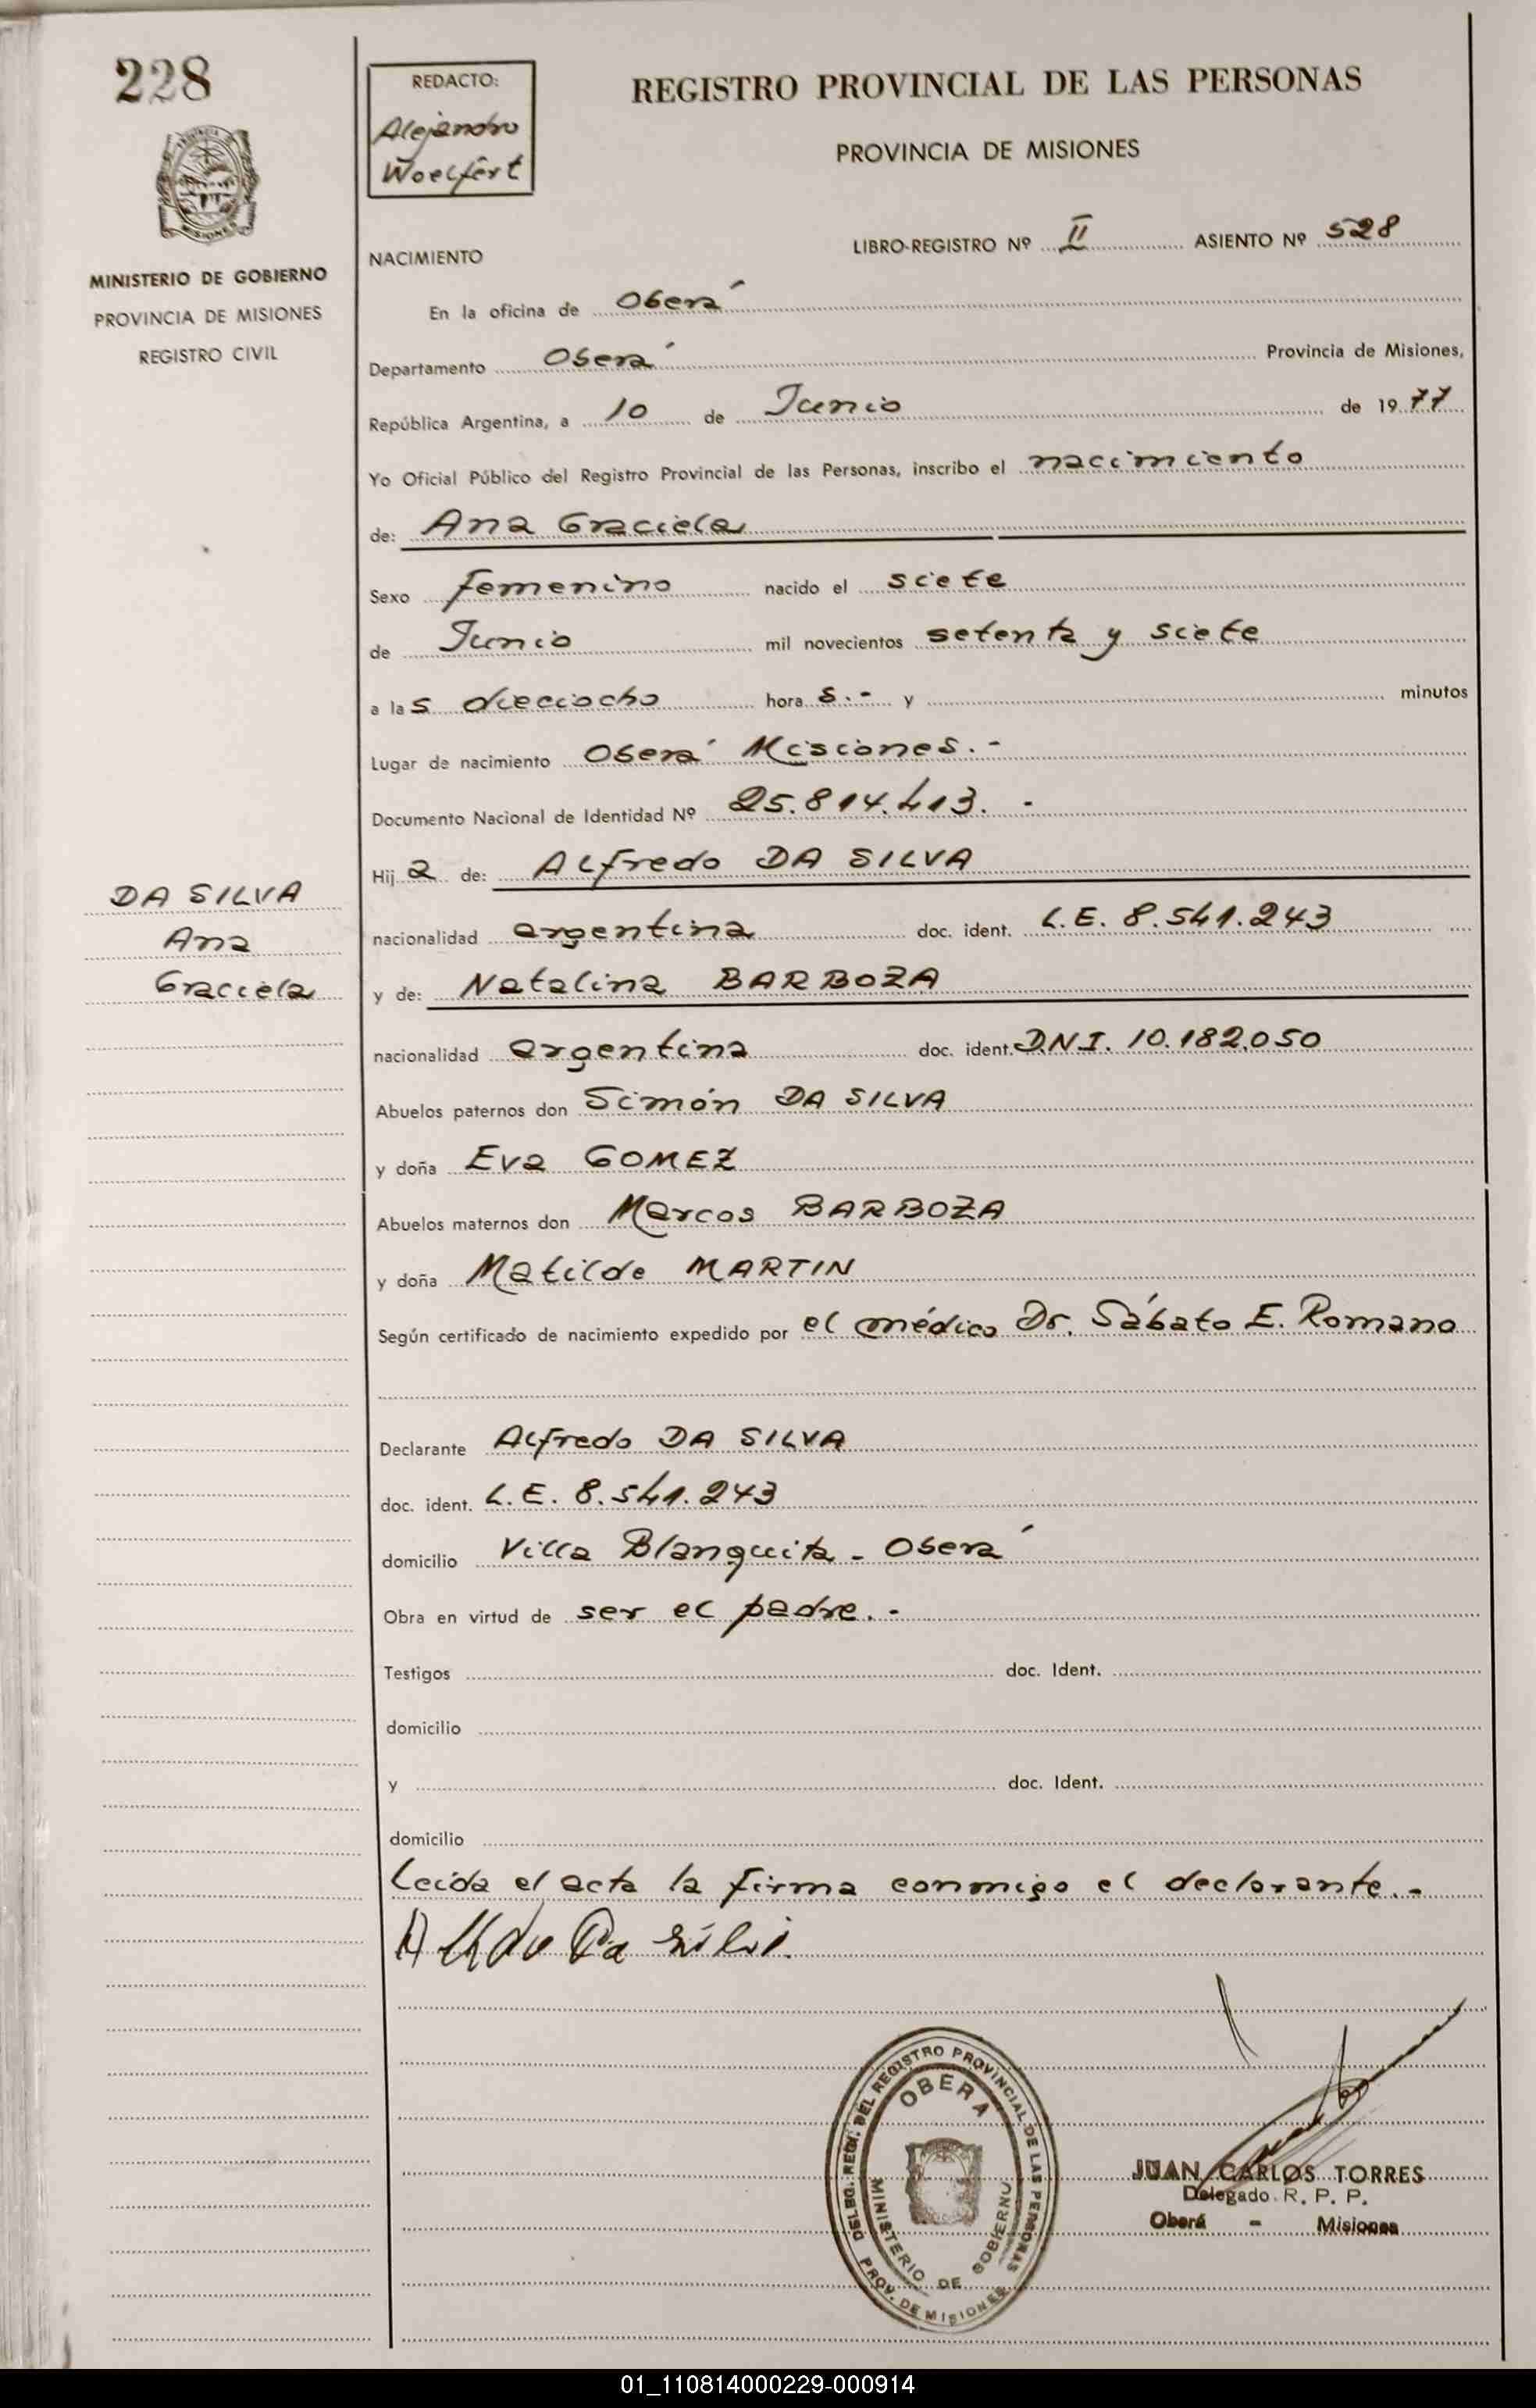 228
REDACTO:
Alejandro
Woelfert
REGISTRO PROVINCIAL DE LAS PERSONAS
PROVINCIA DE MISIONES
MINISTERIO DE GOBIERNO
PROVINCIA DE MISIONES
REGISTRO CIVIL
LIBRO-REGISTRO Nº II ASIENTO Nº 528
NACIMIENTO
En la oficina de Oberá
Departamento Oberá Provincia de Misiones,
República Argentina, a 10 de Junio de 1977
Yo Oficial Público del Registro Provincial de las Personas, inscribo el nacimiento
de: Ana Graciela
Sexo femenino nacido el siete
de Junio mil novecientos setenta y siete
a las dieciocho horas.- y minutos
Lugar de nacimiento Oberá Misiones.-
Documento Nacional de Identidad Nº 25.814.413.-
Hija de: Alfredo DA SILVA
DA SILVA
Ana
Graciela
nacionalidad argentina doc. ident. L.E. 8.541.243
y de: Natalina BARBOZA
nacionalidad argentina doc. ident. D.N.I. 10.182.050
Abuelos paternos don Simón DA SILVA
y doña Eva GOMEZ
Abuelos maternos don Marcos BARBOZA
y doña Matilde MARTIN
Según certificado de nacimiento expedido por el médico Dr. Sábato E. Romano
Declarante Alfredo DA SILVA
doc. ident. L.E. 8.541.243
domicilio Villa Blanquita - Oberá
Obra en virtud de ser el padre.-
Testigos doc. Ident.
domicilio
y doc. Ident.
domicilio
Leida el acta la firma conmigo el declarante.-
Da Silvi
DELEG. REGI. DEL REGISTRO PROVINCIAL DE LAS PERSONAS
OBERA
MINISTERIO DE GOBIERNO
PROV. DE MISIONES
JUAN CARLOS TORRES
Delegado R. P. P.
Oberá - Misiones
01_110814000229-000914